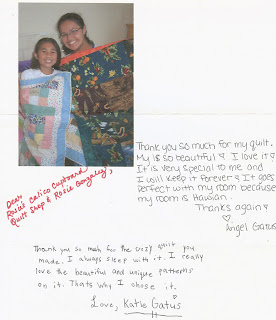 Dear
Rosies Calico Cupboard
Quilt Shop & Rosie Gonzalez,
Thank you so much for my quilt.
My is so beautiful & I love it &
It is very special to me and
I will keep it forever & It goes
perfect with my room because
my room is Hawaiian.
Thanks again &
Angel Gatus
Thank you so much for the cozy quilt you
made. I always sleep with it. I really
love the beautiful and unique patterns
on it. Thats why I chose it.
Love, Katie Gatus